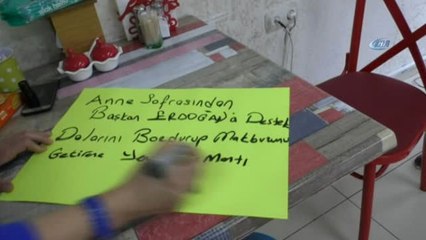 Anne Sofrasından
Başkan ERDOĞAN'a Destek
Dolarını Bozdurup Makbuzunu
Getirene Mantı
iha